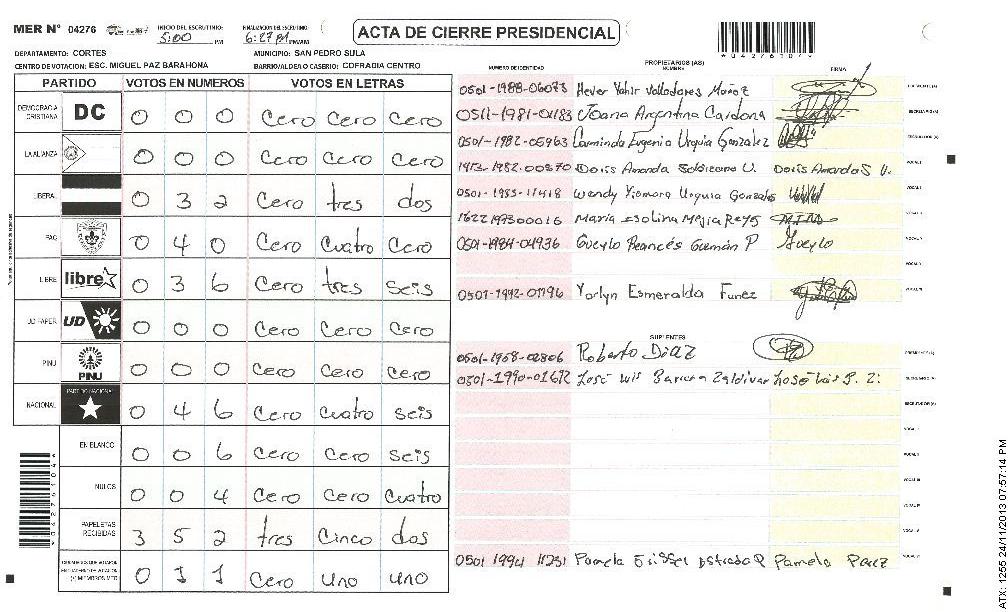 MER N° 04276 INICIO DEL ESCRUTINIO: 5:00 PM FINALIZACION DEL ESCRUTINIO: 6:27 PM/AM/PM ACTA DE CIERRE PRESIDENCIAL
DEPARTAMENTO: CORTES MUNICIPIO: SAN PEDRO SULA
CENTRO DE VOTACION: ESC. MIGUEL PAZ BARAHONA BARRIO/ALDEA O CASERIO: COFRADIA CENTRO
PARTIDO VOTOS EN NUMEROS VOTOS EN LETRAS
DEMOCRACIA CRISTIANA DC 0 0 0 Cero Cero Cero
LA ALIANZA 0 0 0 Cero Cero Cero
LIBERAL 0 3 2 Cero tres dos
PAC 0 4 0 Cero Cuatro Cero
LIBRE libre 0 3 6 Cero tres Seis
UD FAPER UD 0 0 0 Cero Cero Cero
PINU PINU 0 0 0 Cero Cero Cero
NACIONAL PARTIDO NACIONAL 0 4 6 Cero Cuatro Seis
EN BLANCO 0 0 6 Cero Cero Seis
NULOS 0 0 4 Cero Cero Cuatro
PAPELETAS RECIBIDAS 3 5 2 tres Cinco dos
0 1 1 Cero uno uno
NUMERO DE IDENTIDAD PROPIETARIOS (AS) NOMBRE FIRMA
0501-1988-06073 Hever Yahir Valladares Muñoz
0511-1981-01183 Joana Argentina Cardona
0501-1982-05963 Carminda Eugenia Urquia Gonzalez
1413-1982-00870 Doris Amanda U. Doris Amanda S U.
0501-1985-11418 Wendy Xiomara Urquia Gonzales
1622199300016 Maria Esolina Mejia Reyes
0501-1984-04936 Gueylo Guzmán P Gueylo
0501-1992-01796 Yorlyn Esmeralda Funez
SUPLENTES
0501-1958-02806 Roberto Diaz
0501-1990-01672 José Luis Barrera Zaldivar José Luis B. Z.
0501 1994 11231 Pamela Pamela Paez
ATX: 1255 24/11/2013 07:57:14 PM